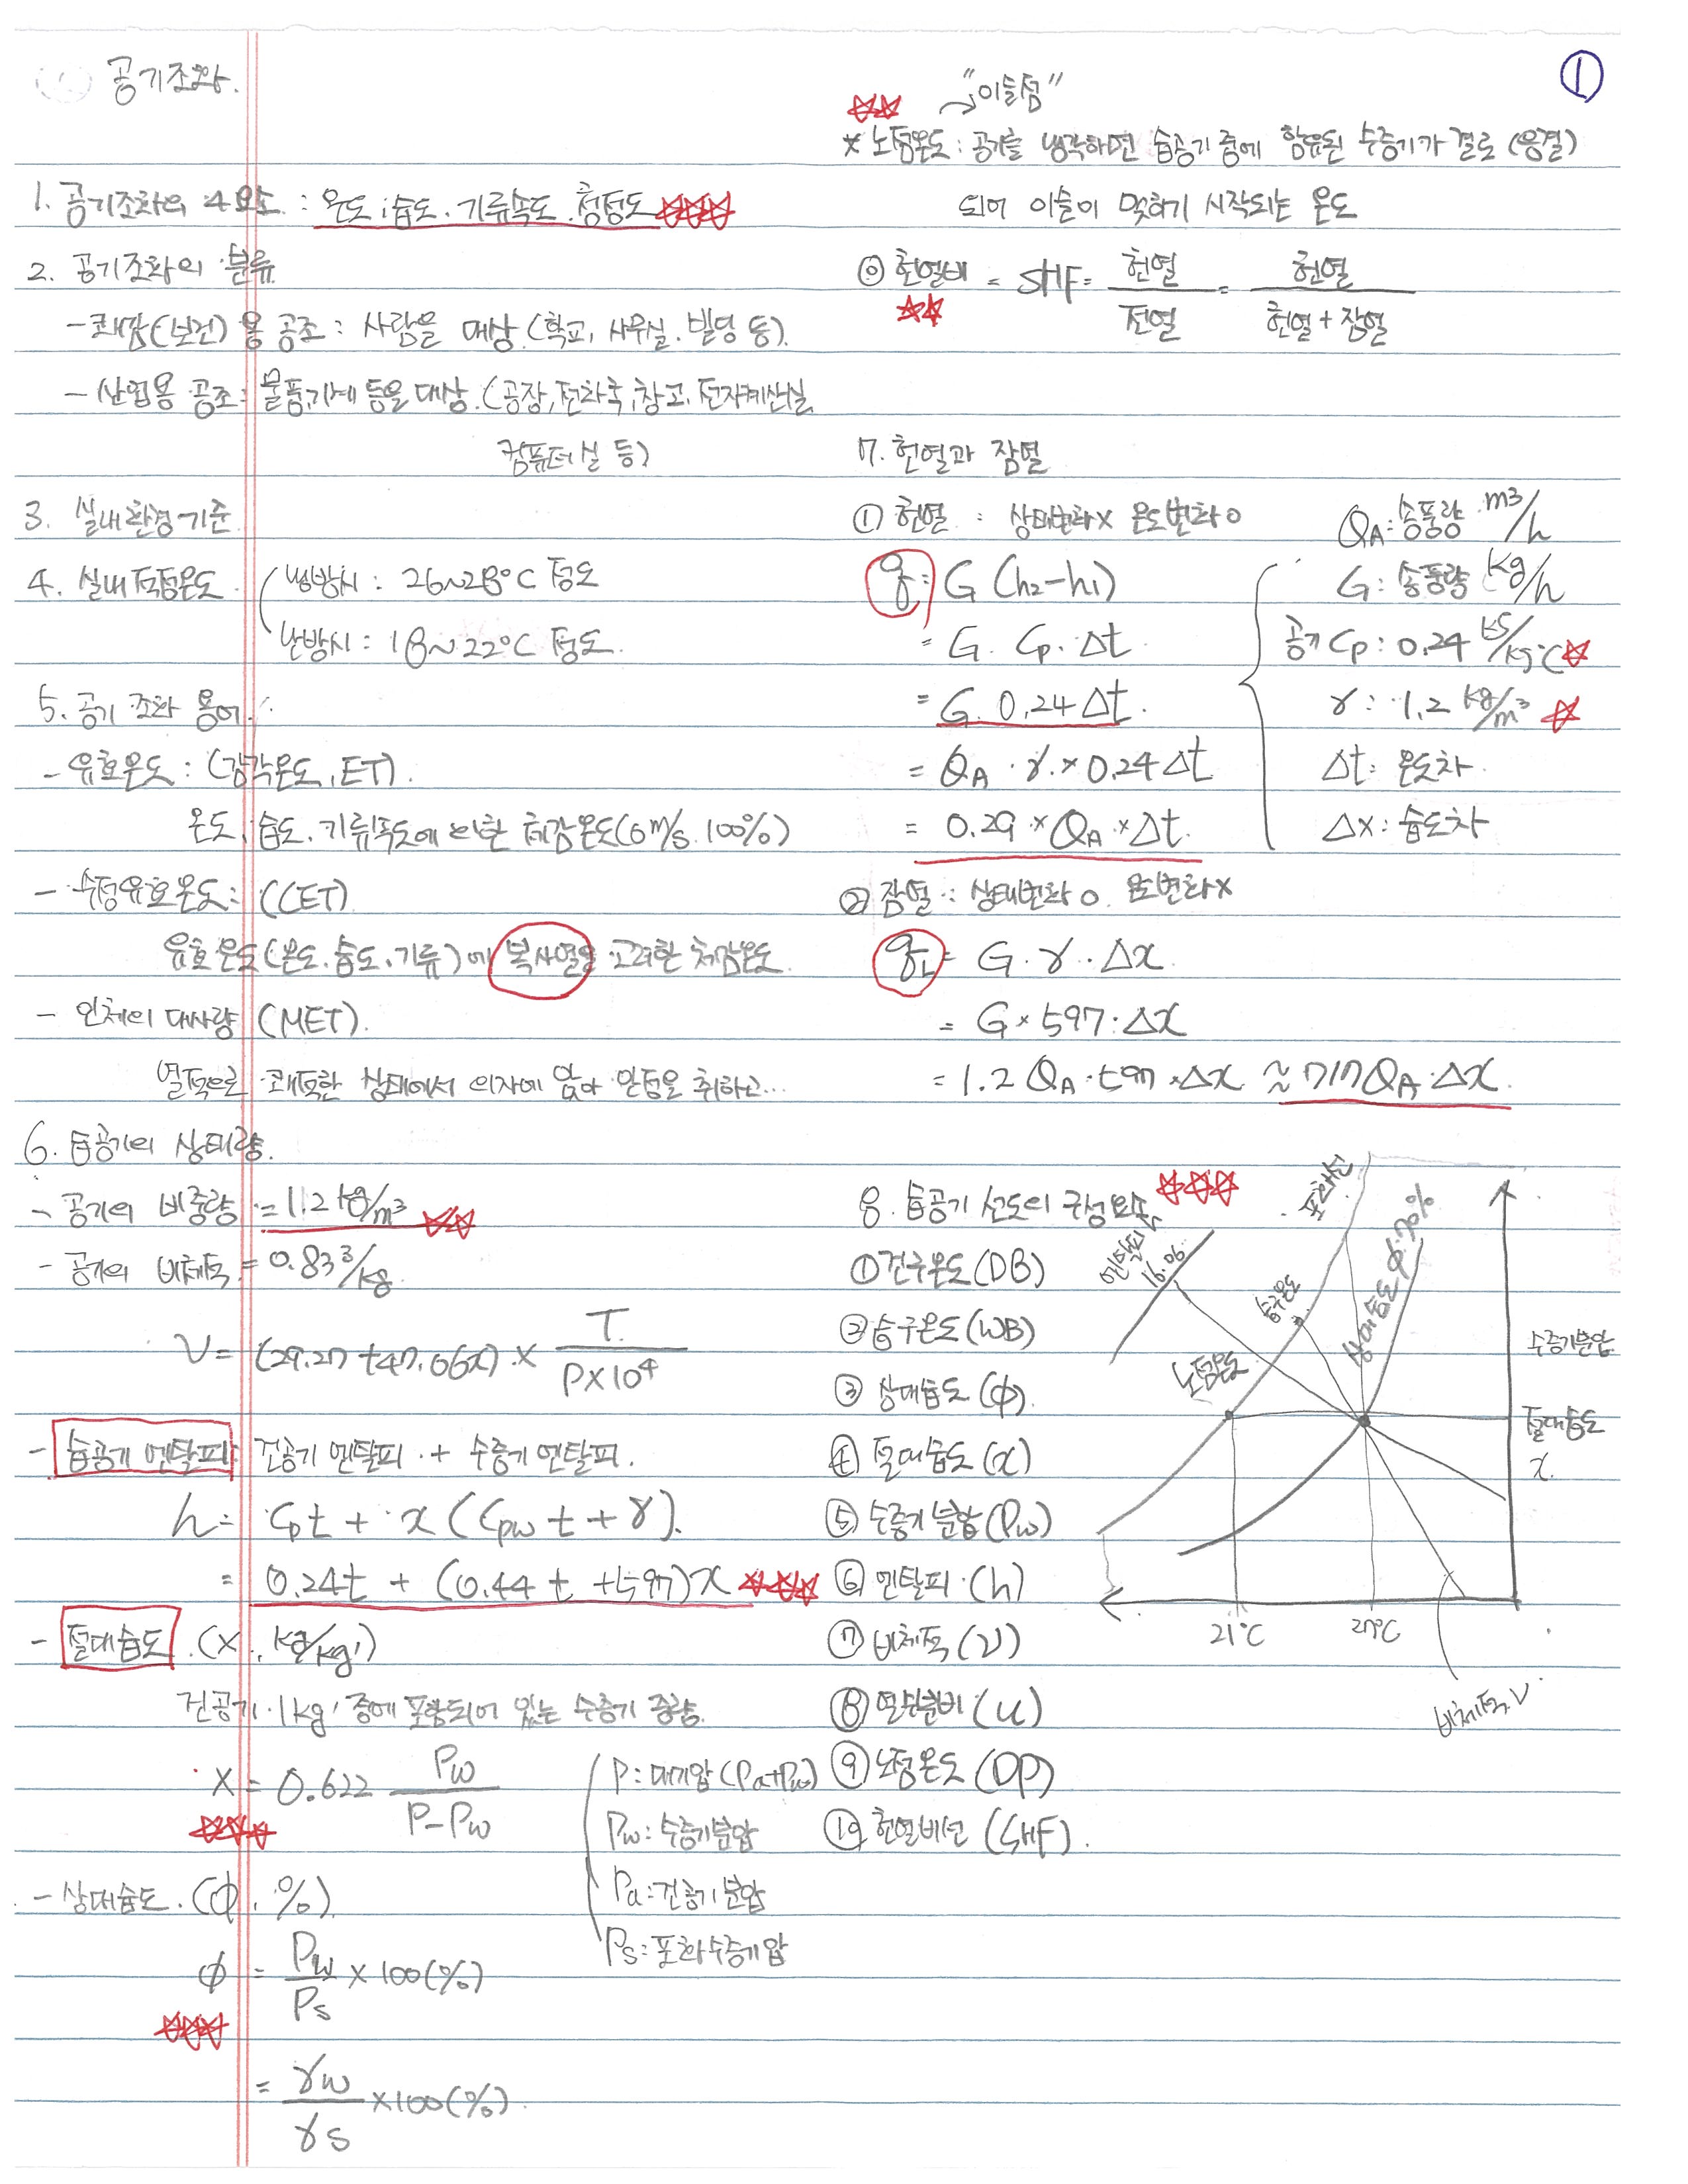 공기조화.
①
1. 공기조화의 4요소 : 온도, 습도, 기류속도, 청정도
2. 공기조화의 분류
- 쾌감(보건)용 공조 : 사람을 대상 (학교, 사무실, 빌딩 등)
- 산업용 공조 : 물품, 기계 등을 대상 (공장, 전화국, 창고, 전자계산실,
컴퓨터실 등)
3. 실내환경기준
4. 실내적정온도
냉방시 : 26~28°C 정도
난방시 : 18~22°C 정도
5. 공기조화 용어
- 유효온도 : (감각온도, ET)
온도, 습도, 기류속도에 의한 체감온도 (0m/s, 100%)
- 수정유효온도 : (CET)
유효온도(온도, 습도, 기류)에 복사열을 고려한 체감온도
- 인체의 대사량 (MET)
열적으로 쾌적한 상태에서 의자에 앉아 안정을 취하고...
6. 습공기의 상태량
- 공기의 비중량 = 1.2 kg/m³
- 공기의 비체적 = 0.83 ³/kg
V = (29.27 + 47.06x) × T / P×10⁴
- 습공기 엔탈피 : 건공기 엔탈피 + 수증기 엔탈피
h = Cp t + x (Cpw t + γ)
= 0.24t + (0.44t + 597)x
- 절대습도 (x, kg/kg')
건공기 1kg' 중에 포함되어 있는 수증기 중량
x = 0.622 Pw / P-Pw
P : 대기압 (Pa+Pw)
Pw : 수증기분압
Pa : 건공기분압
Ps : 포화수증기압
- 상대습도 (φ, %)
φ = Pw / Ps × 100(%)
= γw / γs × 100(%)
"이슬점"
* 노점온도 : 공기를 냉각하면 습공기 중에 함유된 수증기가 결로 (응결)
되어 이슬이 맺히기 시작되는 온도
◎ 현열비 = SHF = 현열 / 전열 = 현열 / 현열 + 잠열
7. 현열과 잠열
① 현열 : 상태변화 × 온도변화 ○
q = G (h₂-h₁)
= G · Cp · Δt
= G · 0.24 Δt
= QA · γ × 0.24 Δt
= 0.29 × QA × Δt
QA : 송풍량 m³/h
G : 송풍량 kg/h
공기 Cp : 0.24 /kg°C
γ : 1.2 kg/m³
Δt : 온도차
Δx : 습도차
② 잠열 : 상태변화 ○ 온도변화 ×
qL = G · γ · Δx
= G × 597 · Δx
= 1.2 QA · 597 · Δx ≈ 717 QA · Δx
8. 습공기 선도의 구성요소
① 건구온도 (DB)
② 습구온도 (WB)
③ 상대습도 (φ)
④ 절대습도 (x)
⑤ 수증기분압 (Pw)
⑥ 엔탈피 (h)
⑦ 비체적 (V)
⑧ 열수분비 (u)
⑨ 노점온도 (DP)
⑩ 현열비선 (SHF)
포화선
엔탈피 h
16.06
습구온도
상대습도 φ 70%
노점온도
수증기분압
절대습도
x
21°C
27°C
비체적 V